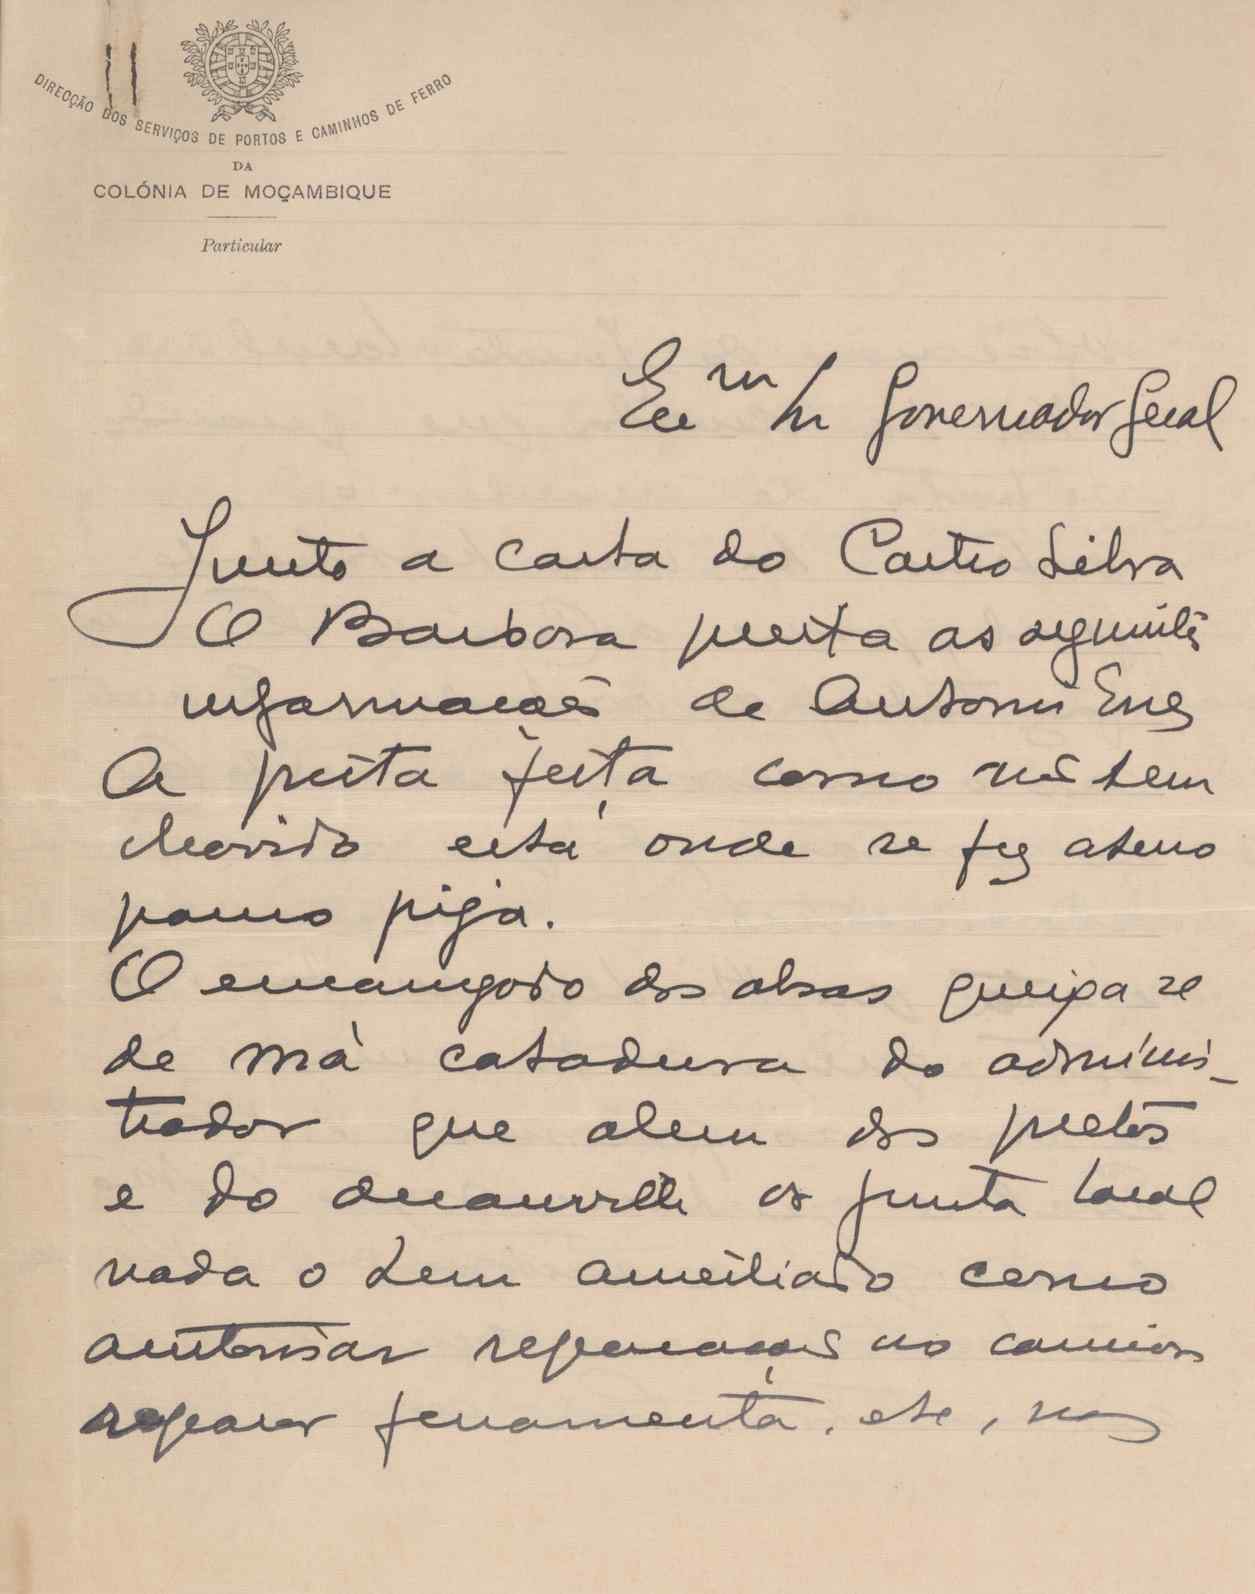 DIRECÇÃO DOS SERVIÇOS DE PORTOS E CAMINHOS DE FERRO
DA
COLÓNIA DE MOÇAMBIQUE
Particular
Exmo Sr Governador Geral
Junto a carta do Castro Silva
O Barbosa presta as seguintes
informações de Antonio Enes
A pista feita, como não tem
chovido está onde se fez aterro
pouco rija.
O encarregado das obras queixa se
de má catadura do adminis-
trador que alem dos pretos
e do decauville da junta local
nada o tem auxiliado como
autorisar reparações no camion
reparar ferramenta, etc, nas